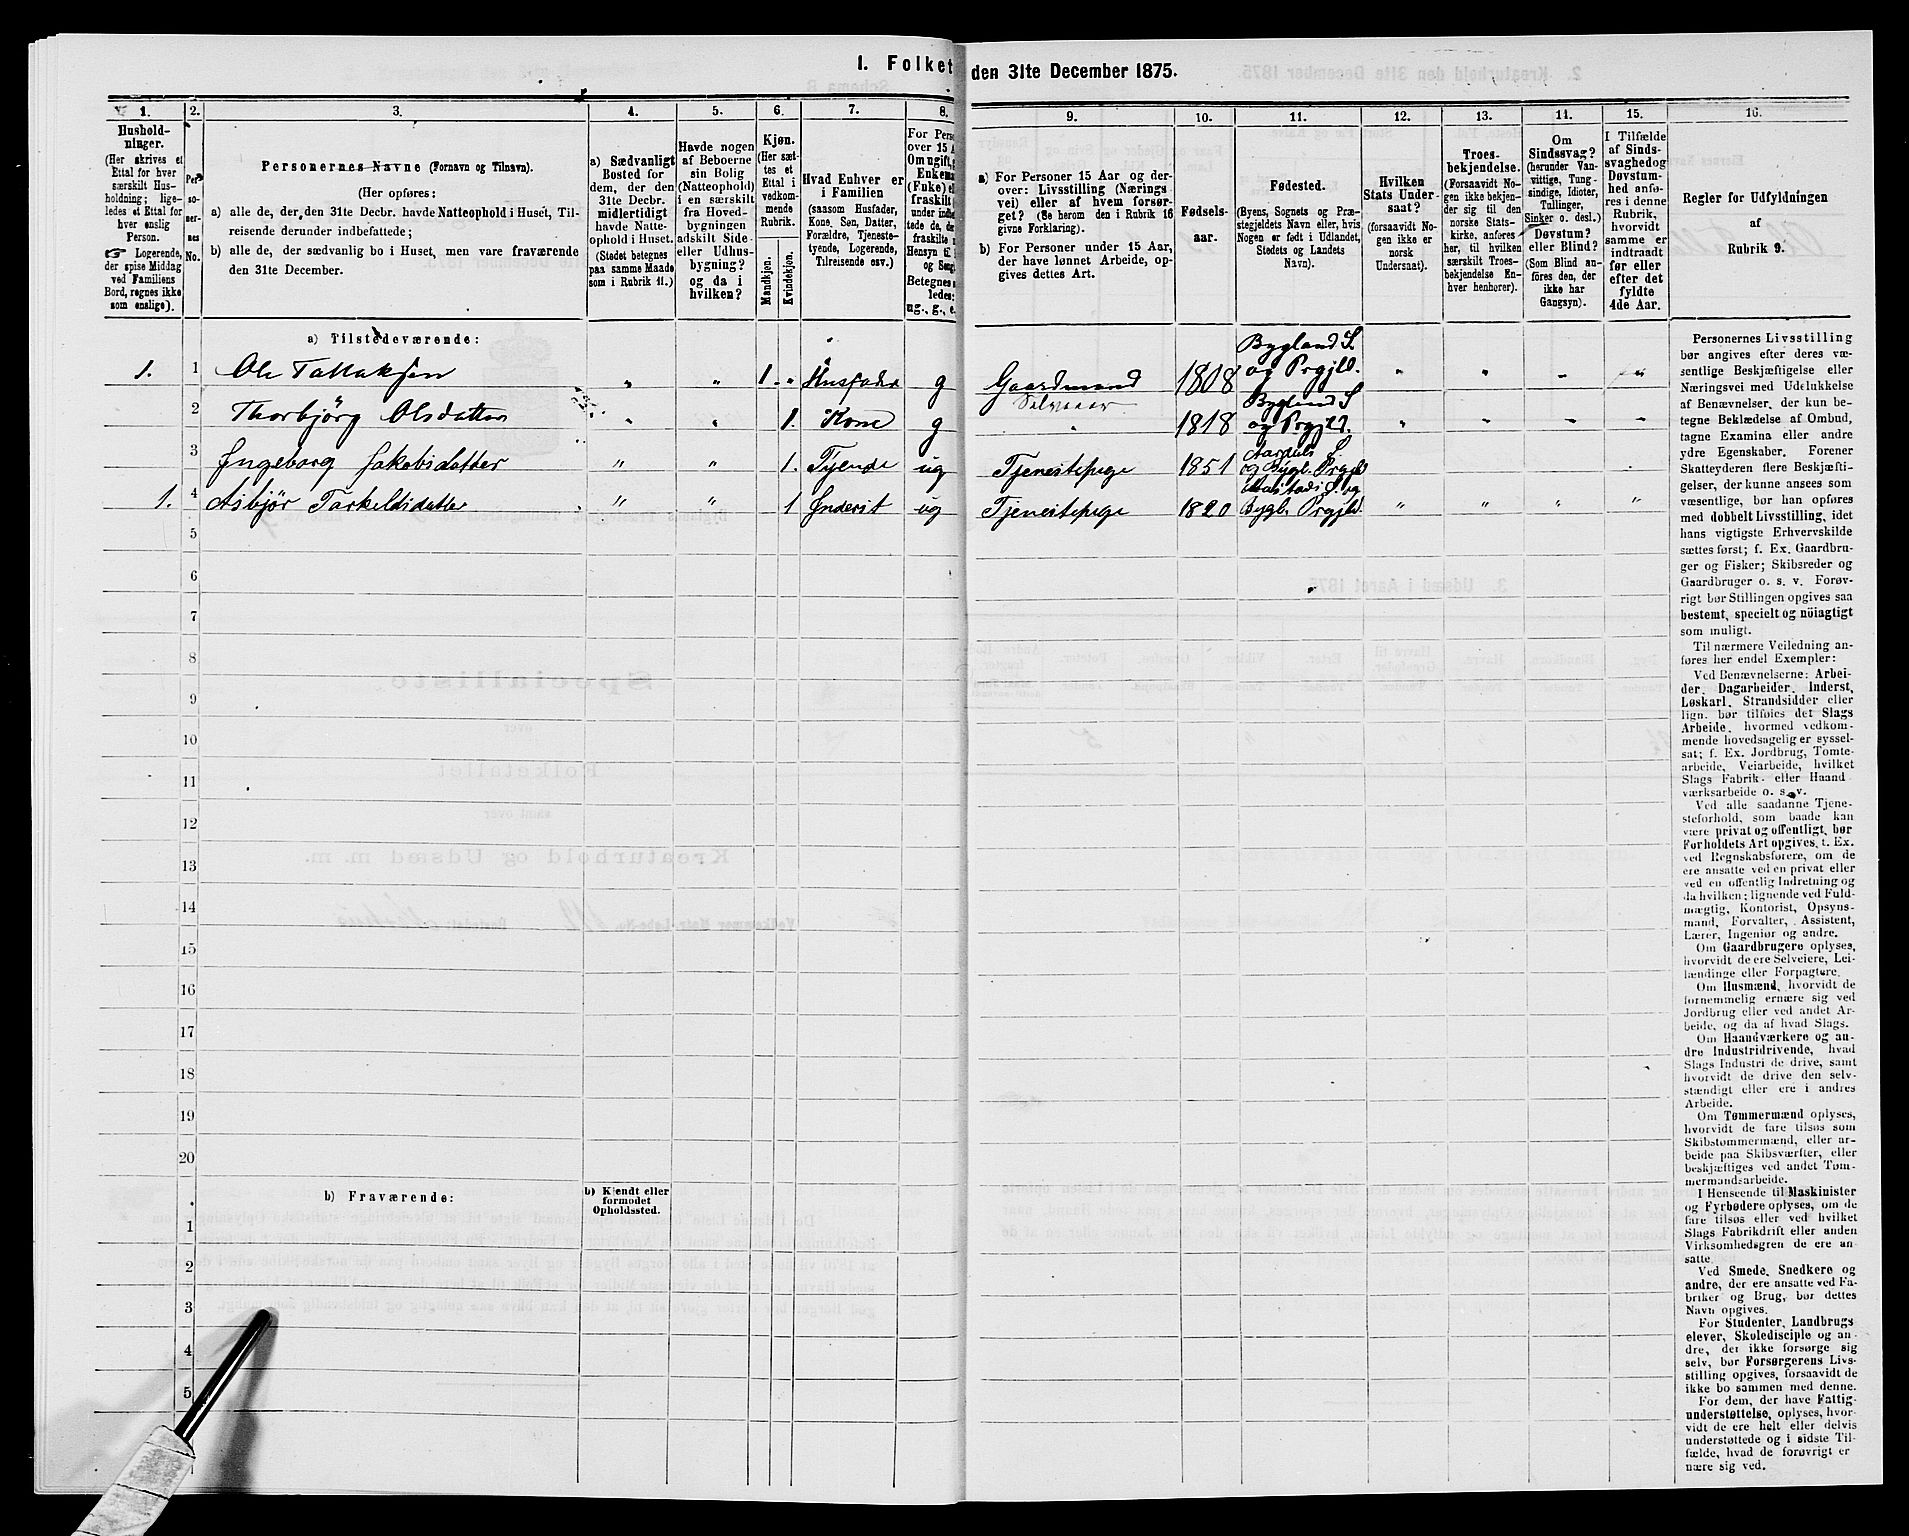 1. Folket
den 31te December 1875.
1.
2.
3.
4.
5.
6.
7.
8.
9.
10.
11.
12.
13.
14.
15.
16.
Hushold-
ninger.
(Her skrives et
Ettal for hver
særskilt Hus-
holdning; lige-
ledes et Ettal for
hver enslig
Person.
Logerende,
der spise Middag
ved Familiens
Bord, regnes ikke
som enslige).
Per-
so-
ner-
nes
No.
Personernes Navne (Fornavn og Tilnavn).
(Her opføres:
a) alle de, der den 31te Decbr. havde Natteophold i Huset, Til-
reisende derunder indbefattede;
b) alle de, der sædvanlig bo i Huset, men vare fraværende
den 31te December.
a) Sædvanligt
Bosted for
dem, der den
31te Decbr.
midlertidigt
havde Natte-
ophold i Huset.
(Stedet betegnes
paa samme Maade
som i Rubrik 11.)
Havde nogen
af Beboerne
sin Bolig
(Natteophold)
i en særskilt
fra Hoved-
bygningen
adskilt Side-
eller Udhus-
bygning?
og da i
hvilken?
Kjøn.
(Her sæt-
tes et
Ettal i
vedkom-
mende
Rubrik.
Mandkjøn.
Kvindekjøn.
Hvad Enhver er
i Familien
(saasom Husfader,
Kone, Søn, Datter,
Forældre, Tjeneste-
tyende, Logerende,
Tilreisende osv.)
For Perso
over 15 A
Om ugift, g
Enkem
(Enke) el
fraskilt
under indb
tede de, d
fraskilte
Hensyn til
og Seng
Betegnes s
ledes:
ug., g., e.
a) For Personer 15 Aar og der-
over: Livsstilling (Nærings-
vei) eller af hvem forsør-
get? (Se herom den i Rubrik 16
givne Forklaring).
b) For Personer under 15 Aar,
der have lønnet Arbeide, op-
gives dettes Art.
Fødsels-
aar.
Fødested.
(Byens, Sognets og Præ-
stegjeldets Navn eller, hvis
Nogen er født i Udlandet,
Stedets og Landets
Navn).
Hvilken
Stats Under-
saat?
(forsaavidt No-
gen ikke er
norsk
Undersaat).
Troes-
bekjendelse.
(Forsaavidt No-
gen ikke bekjen-
der sig til den
norske Stats-
kirke, anføres
her, til hvilken
særskilt Troes-
bekjendelse En-
hver henhører).
Om
Sindssvag?
(herunder Van-
vittige, Tung-
sindige, Idioter,
Tullinger,
Sinker o. desl.)
Døvstum?
eller Blind?
(Som Blind an-
føres den, der
ikke har
Gangsyn).
I Tilfælde
af Sinds-
svaghedog
Døvstum-
hed anfø-
res i denne
Rubrik,
hvorvidt
samme er
indtraadt
før eller
efter det
fyldte
4de Aar.
Regler for Udfyldningen
af
Rubrik 9.
a) Tilstedeværende:
1. 1 Ole Tallaksen " " 1 " Husfader g Gaardmand Selveier 1808 Bygland S. og Prgjld. " " " "
2 Thorbjørg Olsdatter " " 1. Kone g " 1818 Bygland S og Prgjld. " " " "
3 Ingeborg Jakobsdatter " " 1. Tyende ug Tjenestepige 1851 Aardals S. og Bygl. Prgjld
1. 4 Asbjør Tarkeldsdatter " " 1 Inderst ug Tjenestepige 1820 S. og Bygl. Prgjld. " " " "
5
6
7
8
9
10
11
12
13
14
15
16
17
18
19
20
b) Fraværende:
b) Kjendt eller
formodet
Opholdssted.
1
2
3
4
5
Personernes Livsstilling
bør angives efter deres væ-
sentlige Beskjæftigelse eller
Næringsvei med Udelukkelse
af Benævnelser, der kun be-
tegne Beklædelse af Ombud,
tagne Examina eller andre
ydre Egenskaber. Forener
Skatteyderen flere Beskjæfti-
gelser, der kunne ansees som
væsentlige, bør han opføres
med dobbelt Livsstilling, idet
hans vigtigste Erhvervskilde
sættes først; f. Ex. Gaardbru-
ger og Fisker; Skibsreder og
Gaardbruger o. s. v. Forøv-
rigt bør Stillingen opgives saa
bestemt, specielt og nøiagtigt
som muligt.
Til nærmere Veiledning an-
føres her endel Exempler:
Ved Benævnelserne: Arbei-
der, Dagarbeider, Inderst,
Løskarl, Strandsidder eller
lign. bør tilføies det Slags
Arbeide, hvormed vedkom-
mende hovedsagelig er syssel-
sat; f. Ex. Jordbrug, Tomte-
arbeide, Veiarbeide, hvilket
Slags Fabrik- eller Haand-
værksarbeide o. s. v.
Ved alle saadanne Tjene-
steforhold, som baade kan
være privat og offentligt, bør
Forholdets Art opgives, t. Ex.
ved Regnskabsførere, om de
ere ansatte ved en privat eller
ved en offentlig Indretning og
da hvilken; lignende ved Fuld-
mægtig, Kontorist, Opsyns-
mand, Forvalter, Assistent,
Lærer, Ingeniør og andre.
Om Gaardbrugere oplyses,
hvorvidt de ere Selveiere, Lei-
lændinge eller Forpagtere.
Om Husmænd, hvorvidt de
fornemmelig ernære sig ved
Jordbrug eller ved andet Ar-
beide, og da af hvad Slags.
Om Haandværkere og an-
dre Industridrivende, hvad
Slags Industri de drive, samt
hvorvidt de drive den selv-
stændigt eller ere i andres
Arbeide.
Om Tømmermænd oplyses,
hvorvidt de fare tilsøs som
Skibstømmermænd, eller ar-
beide paa Skibsværfter, eller
beskjæftiges ved andet Tøm-
mermandsarbeide.
I Henseende til Maskinister
og Fyrbødere oplyses, om de
fare tilsøs eller ved hvilket
Slags Fabrikdrift eller anden
Virksomhedsgren de ere an-
satte.
Ved Smede, Snedkere og
andre, der ere ansatte ved Fa-
briker og Brug, bør dettes
Navn opgives.
For Studenter, Landbrugs-
elever, Skoledisciple og an-
dre, der ikke forsørge sig
selv, bør Forsørgerens Livs-
stilling opgives, forsaavidt de
ikke bo sammen med denne.
For dem, der have Fattig-
understøttelse, oplyses, hvor-
vidt de ere helt eller delvis
understøttede og i sidste Til-
fælde, hvad de forøvrigt er-
nære sig ved.